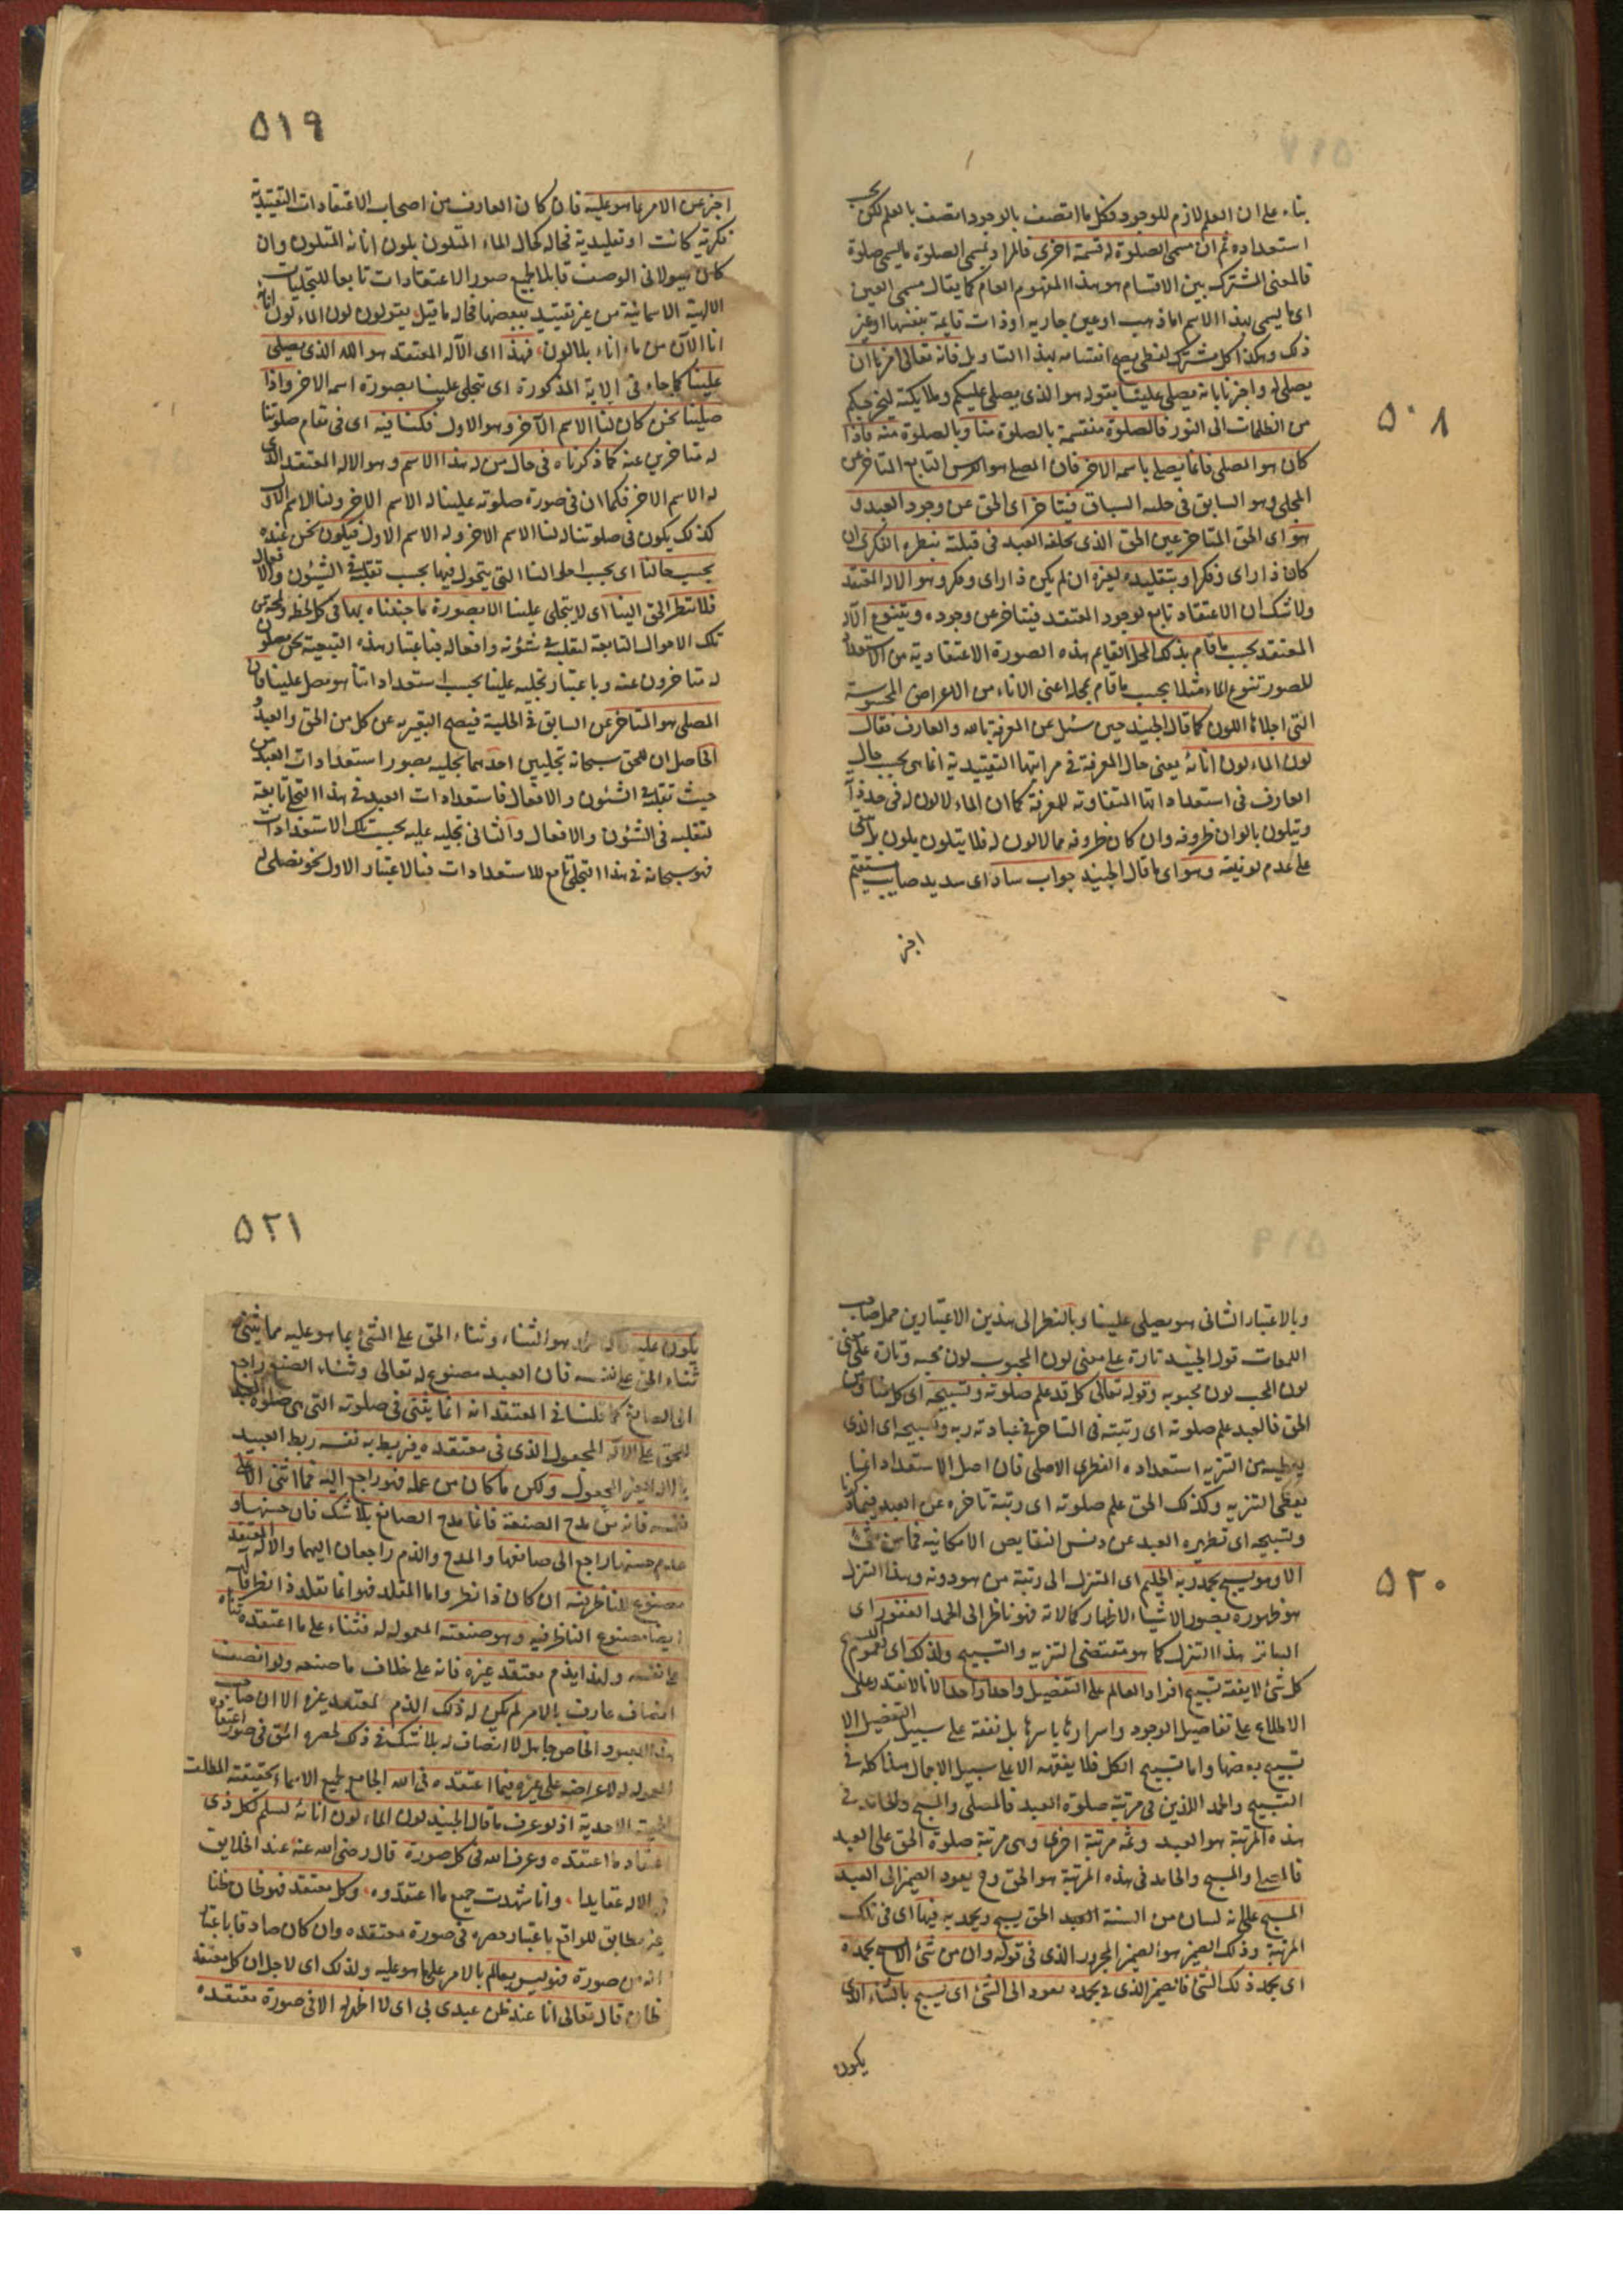 ٥٠٨
بناء على ان العلم لازم للوجود فكل ما اتصف بالوجود اتصف بالعلم لكن بحسب
استعداده ثم ان مسمى الصلوة له قسمة اخرى فالمراد بمسمى الصلوة ما يسمى صلوة
فالمعنى المشترك بين الاقسام هو هذا المفهوم العام كما يقال مسمى العين
اى ما يسمى بهذا الاسم اما ذهب او عين جارية او ذات قايمة بنفسها او غير
ذلك وهكذا كل مشترك لفظى يصح انقسامه بهذا التاويل فانه تعالى امرنا ان
يصلى له واخبرنا بانه يصلى علينا بقوله هو الذى يصلى عليكم وملايكته ليخرجكم
من الظلمات الى النور فالصلوة منقسمة بالصلوة منا وبالصلوة منه فاذا
كان هو المصلى فانما يصلى باسمه الاخر فان المصلى هو الفرس التابع المتاخر عن
المجلى وهو السابق فى حلبة السباق فيتاخر اى الحق عن وجود العبد و
هو اى الحق المتاخر عين الحق الذى يخلقه العبد فى قبلته بنظره الفكرى ان
كان ذا راى وفكر او بتقليده لغيره ان لم يكن ذا راى وفكر وهو الاله المعتقد
ولا شك ان الاعتقاد تابع لوجود المعتقد فيتاخر عن وجوده ويتنوع الاله
المعتقد بحسب ما قام بذلك المحل القايم هذه الصورة الاعتقادية من الاستعداد
للصور تنوع الماء مثلا بحسب ما قام بمحله اعنى الاناء من الاعراض المحسوسة
التى اجلاها اللون كما قال الجنيد حين سئل عن المعرفة بالله والعارف فقال
لون الماء لون انائه يعنى حال المعرفة فى مراتبها التقييدية انما هى بحسب حال
العارف فى استعداداتها المتفاوتة للمعرفة كما ان الماء لا لون له فى حد ذاته
ويتلون بالوان ظروفه وان كان ظروفه مما لا لون له فلا يتلون بلون بل يبقى
على عدم لونيته وهو اى ما قال الجنيد جواب ساد اى سديد صايب مستقيم
اخبر
٥١٩
اخبر عن الامر بما هو عليه فان كان العارف من اصحاب الاعتقادات التقييدية
فكرية كانت او تقليدية فحاله كحال الماء المتلون بلون انائه المتلون وان
كان هيولانى الوصف قابلا لجميع صور الاعتقادات تابعا للتجليات
الالهية الاسمائية من غير تقييد ببعضها فحاله ما قيل يقولون لون الماء لون انائه
انا الآن من ماء اناء بلا لون فهذا اى الاله المعتقد هو الله الذى يصلى
علينا كما جاء فى الاية المذكورة اى تجلى علينا بصورة اسمه الاخر واذا
صلينا نحن كان لنا الاسم الآخر وهو الاول فكنا فيه اى فى مقام صلوتنا
له متاخرين عنه كما ذكرناه فى حال من له هذا الاسم وهو الاله المعتقد الذى
له الاسم الاخر فكما ان فى صورة صلوته علينا له الاسم الاخر ولنا الاسم الاول
كذلك يكون فى صلوتنا له لنا الاسم الاخر وله الاسم الاول فيكون نحن عنده
بحسب حالنا اى بحسب احوالنا التى يتحول فيها بحسب تقلبه فى الشئون والافعال
فلا ينظر الحق الينا اى لا يتجلى علينا الا بصورة ما جئناه بها فى كل لحظة ولمحة من
تلك الاحوال التابعة لتقلبه فى شئونه وافعاله فباعتبار هذه التبعية نحن مصلون
له متاخرون عنه وباعتبار تجليه علينا بحسب استعداداتنا هو مصل علينا فان
المصلى هو المتاخر عن السابق فى الحلبة فيصح التعبير به عن كل من الحق والعبد و
الحاصل ان للحق سبحانه تجليين احدهما تجليه بصور استعدادات العبد من
حيث تقلبه فى الشئون والافعال فاستعدادات العبد فى هذا التجلى تابعة
لتقلبه فى الشئون والافعال والثانى تجليه عليه بحسب تلك الاستعدادات
فهو سبحانه فى هذا التجلى تابع للاستعدادات فبالاعتبار الاول نحن نصلى له
٥٢٠
وبالاعتبار الثانى هو يصلى علينا وبالنظر الى هذين الاعتبارين حمل صاحب
اللمعات قول الجنيد تارة على معنى لون المحبوب لون محبه وتارة على معنى
لون المحب لون محبوبه وقوله تعالى كل قد علم صلوته وتسبيحه اى كل منا ومن
الحق فالعبد علم صلوته اى رتبته فى التاخر فى عبادته ربه وتسبيحه اى الذى
يعطيه من التنزيه استعداده الفطرى الاصلى فان اصل الاستعداد انما
يعطى التنزيه وكذلك الحق علم صلوته اى رتبة تاخره عن العبد فيما ذكرنا
وتسبيحه اى تطهيره العبد عن دنس النقايص الامكانية فما من شئ
الا وهو يسبح بحمد ربه الحليم اى المتنزل الى رتبة من هو دونه وهذا التنزل
هو ظهوره بصور الاشياء لاظهار كمالاته فهو ناظر الى الحمد الغفور اى
الساتر هذا التنزل كما هو مقتضى التنزيه والتسبيح ولذلك اى لعموم تسبيح
كل شئ لا يفقه تسبيح افراد العالم على التفصيل واحدا واحدا لانا لا نقدر على
الاطلاع على تفاصيل الوجود واسرارها باسرها بل نفقه على سبيل التفصيل الا
تسبيح بعضها واما تسبيح الكل فلا يفقهه الا على سبيل الاجمال هذا كله فى
التسبيح والحمد اللذين فى مرتبة صلوة العبد فالمصلى والمسبح والحامد فى
هذه المرتبة هو العبد وثمه مرتبة اخرى وهى مرتبة صلوة الحق على العبد
فالمصلى والمسبح والحامد فى هذه المرتبة هو الحق وح يعود الضمير الى العبد
المسبح على انه لسان من السنة العبد الحق يسبح ويحمد به فيها اى فى تلك
المرتبة وذلك الضمير هو الضمير المجرور الذى فى قوله وان من شئ الا يسبح بحمده
اى بحمد ذلك الشئ فالضمير الذى فى بحمده يعود الى الشئ اى يسبح بالثناء الذى
يكون
٥٢١
يكون عليه هو الثناء وثناء الحق على الشئ بما هو عليه مما يثنى
ثناء الحق على نفسه فان العبد مصنوع له تعالى وثناء الصنع راجع
الى الصانع كما قلنا فى المعتقد انه انما يثنى فى صلوته التى هى صلوة العبد
للحق على الاله المجعول الذى فى معتقده فربط به نفسه ربط العبيد
بالاله الغير المجعول ولكن ما كان من عمله فهو راجع اليه فما اثنى الا على
نفسه فانه من مدح الصنعة فانما مدح الصانع بلا شك فان حسنها و
عدم حسنها راجع الى صانعها والمدح والذم راجعان اليهما والاله المعتقد
مصنوع للناظر فيه ان كان ذا نظر واما المقلد فهو انما تقلد ذا نظر
ايضا مصنوع الناظر فيه وهو صنعته المعموله له فثناءه على ما اعتقده ثناءه
على نفسه ولهذا يذم معتقد غيره فانه على خلاف ما صنعه ولو انصف
انصاف عارف بالامر لم يكن له ذلك الذم لمعتقد غيره الا ان صاحب
هذا المعبود الخاص جاهل لا انصاف له بلا شك فى ذلك لحصره الحق فى صورة اعتقاده
المعموله له لاعتراضه على غيره فيما اعتقده فى الله الجامع لجميع الاسماء بحقيقته المطلقة
الاحدية اذ لو عرف ما قال الجنيد لون الماء لون انائه لسلم لكل ذى
اعتقاد ما اعتقده وعرف الله فى كل صورة قال رضى الله عنه عقد الخلايق
فى الاله عقايدا وانا شهدت جميع ما اعتقدوه وكل معتقد فهو ظان ظنا
غير مطابق للواقع باعتبار حصره فى صورة معتقده وان كان صادقا باعتبار
انه من صورة فهو ليس بعالم بالامر على ما هو عليه ولذلك اى لاجل ان كل معتقد
ظان قال تعالى انا عند ظن عبدى بى اى لا اظهر له الا فى صورة معتقده